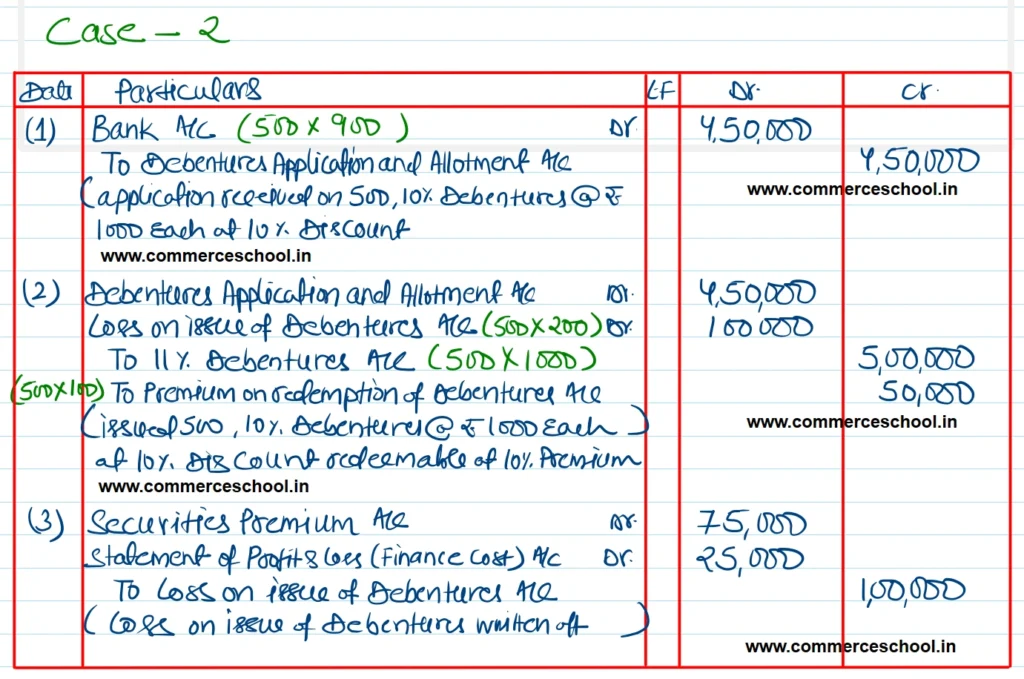 Case - 2
Date Particulars LF Dr. Cr.
(1) Bank A/c (500 x 900) Dr. 4,50,000
To Debentures Application and Allotment A/c 4,50,000
(application received on 500, 10% Debentures @ ₹ www.commerceschool.in
1000 Each at 10% Discount
www.commerceschool.in
(2) Debentures Application and Allotment A/c Dr. 4,50,000
Loss on issue of Debentures A/c (500x200) Dr. 100000
To 11% Debentures A/c (500x1000) 5,00,000
(500x100) To Premium on redemption of Debentures A/c 50,000
(issued 500, 10% Debentures @ ₹ 1000 Each) www.commerceschool.in
at 10% Discount redeemable at 10% Premium
www.commerceschool.in
(3) Securities Premium A/c Dr. 75,000
Statement of Profit & Loss (Finance Cost) A/c Dr. 25,000
To Loss on issue of Debentures A/c 1,00,000
(Loss on issue of Debentures written off)
www.commerceschool.in